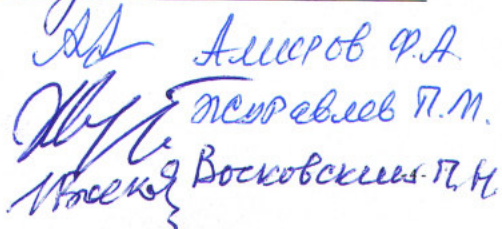 Амиров Ф.А.
Журавлев П.М.
Восковский П.Н.